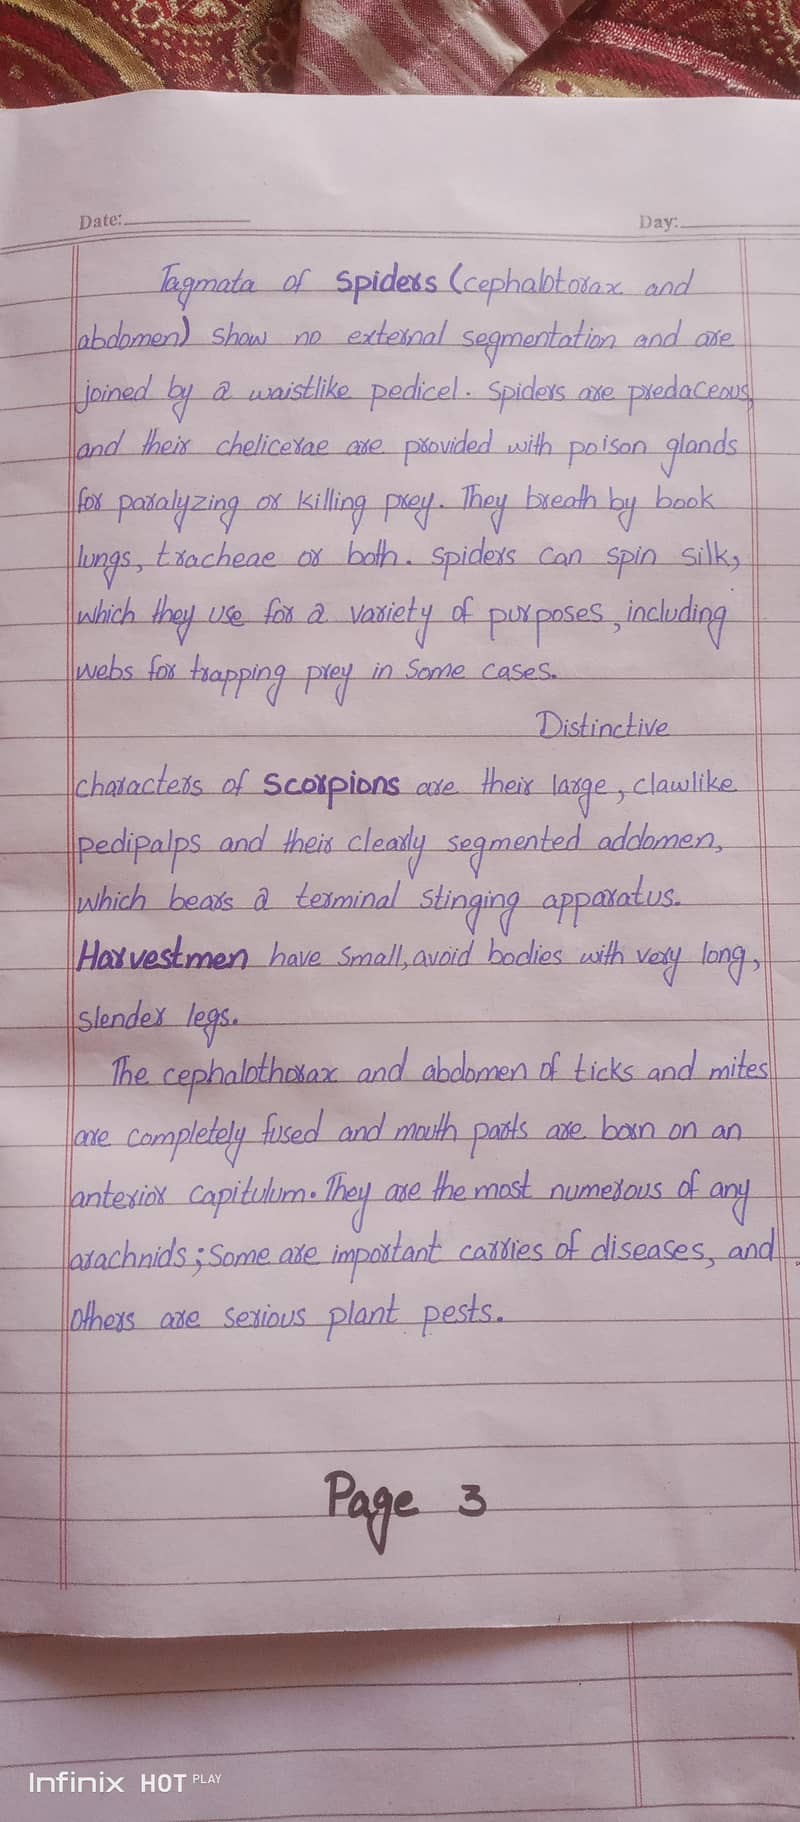 Date:
Day:
Tagmata of Spiders (cephalotorax and
abdomen) show no external segmentation and are
joined by a waistlike pedicel. Spiders are predaceous,
and their chelicerae are provided with poison glands
for paralyzing or killing prey. They breath by book
lungs, tracheae or both. Spiders can spin silk,
which they use for a variety of purposes, including
webs for trapping prey in some cases.
Distinctive
characters of Scorpions are their large, clawlike
pedipalps and their clearly segmented addomen,
which bears a terminal stinging apparatus.
Harvestmen have small, avoid bodies with very long,
slender legs.
The cephalothorax and abdomen of ticks and mites
are completely fused and mouth parts are born on an
anterior capitulum. They are the most numerous of any
arachnids; Some are important carries of diseases, and
others are serious plant pests.
Page 3
Infinix HOT PLAY